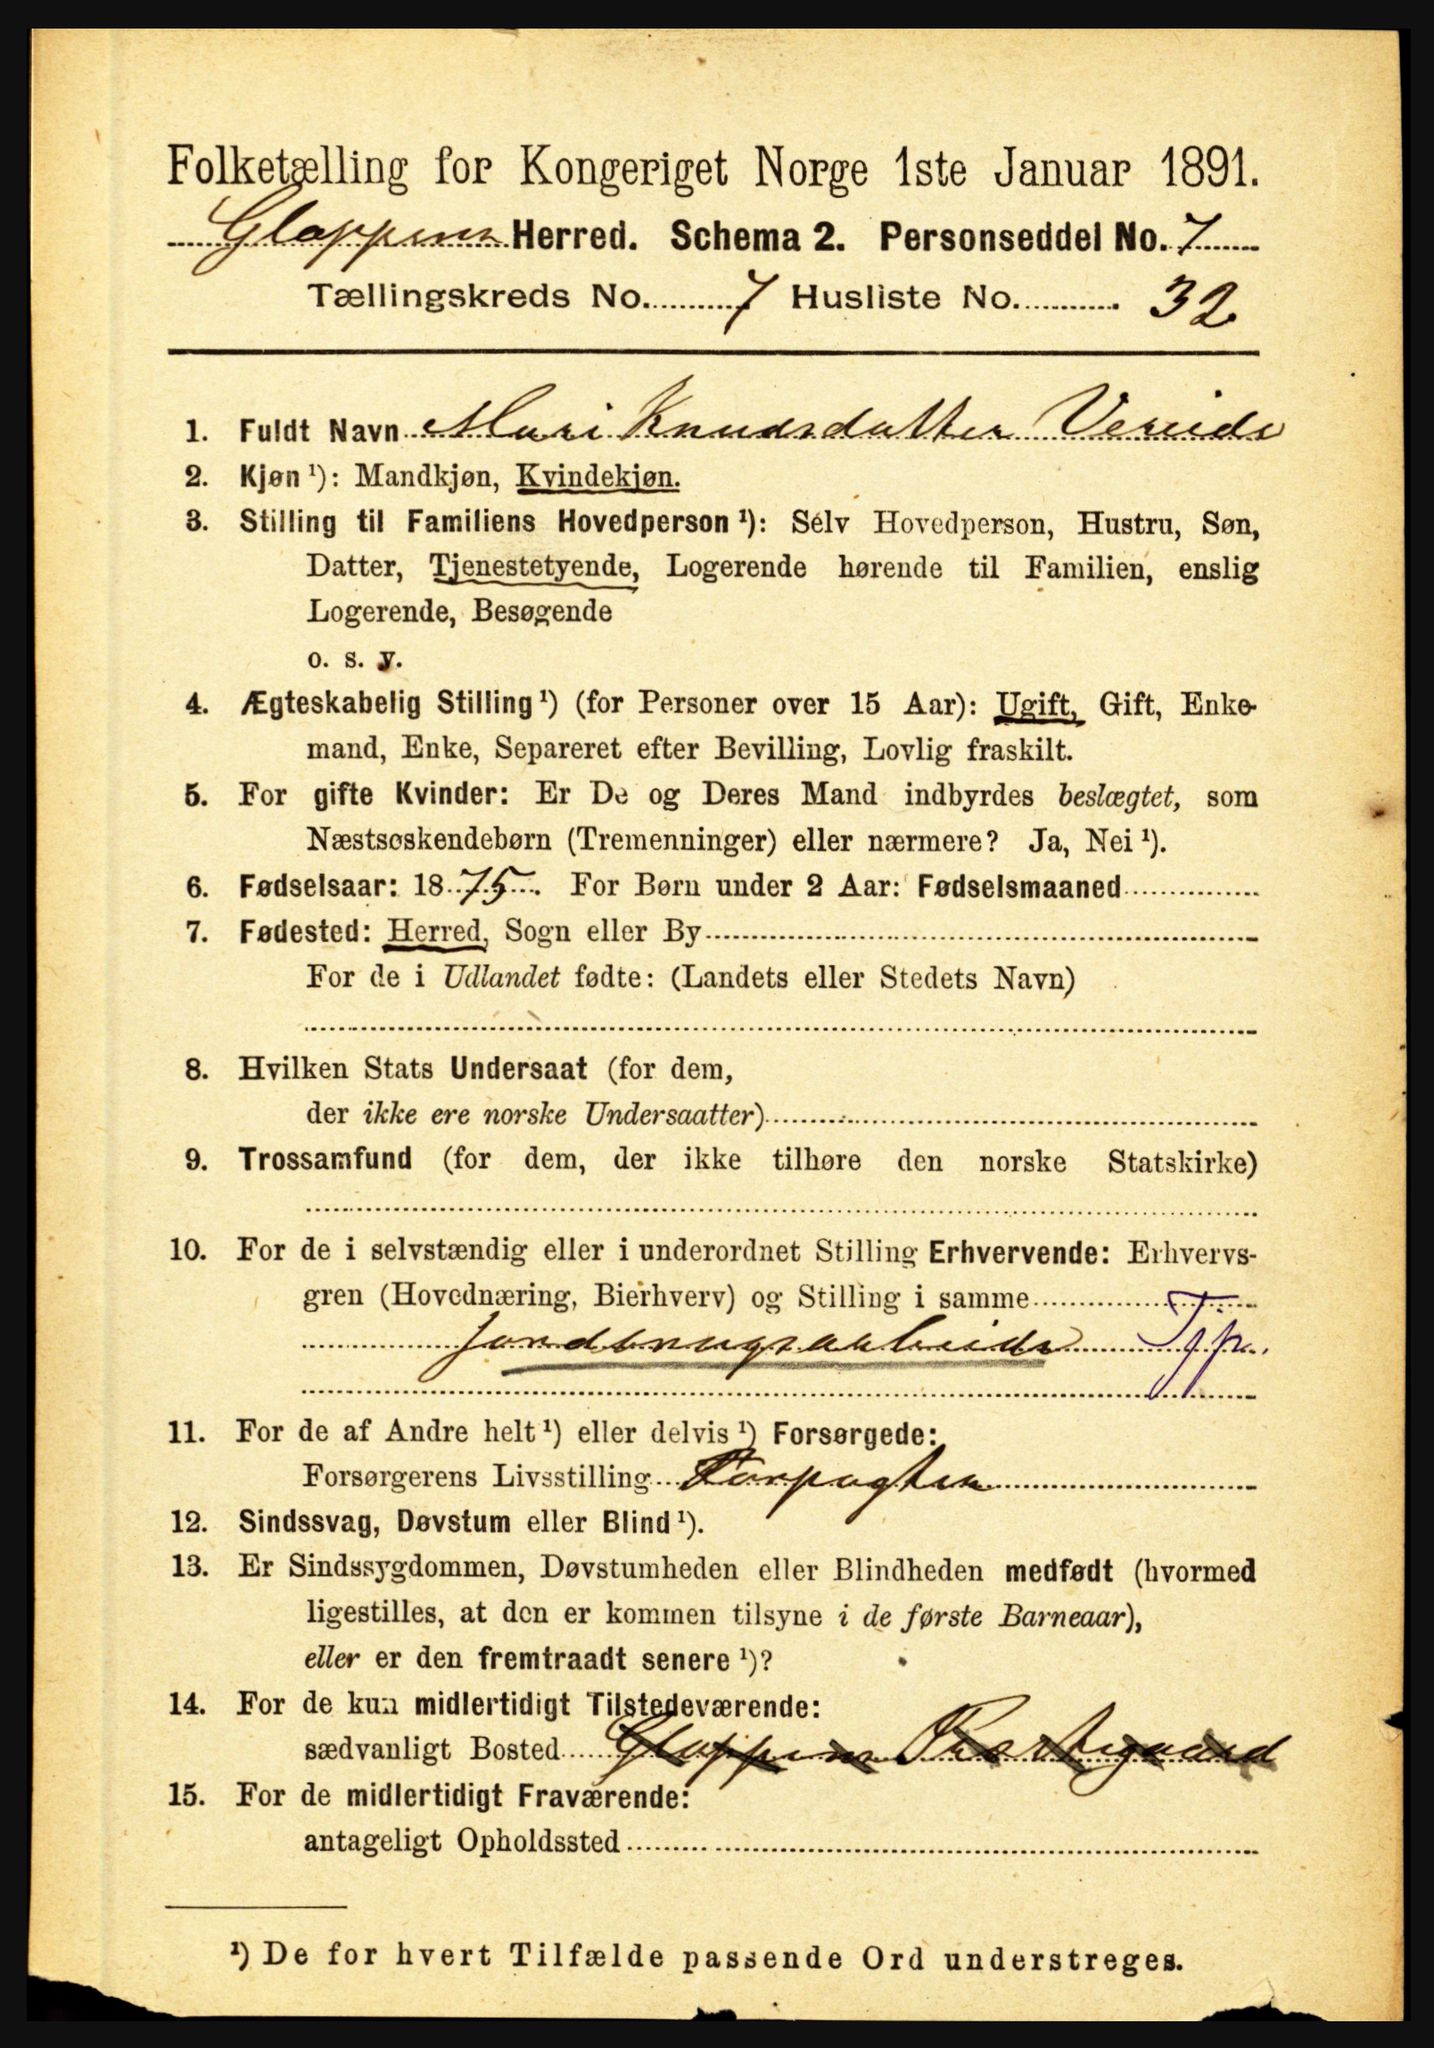 Folketælling for Kongeriget Norge 1ste Januar 1891.
Gloppens Herred. Schema 2. Personseddel No. 7
Tællingskreds No. 7 Husliste No. 32
1. Fuldt Navn Mari Knudsdatter Vereide
2. Kjøn ¹): Mandkjøn, Kvindekjøn.
3. Stilling til Familiens Hovedperson ¹): Selv Hovedperson, Hustru, Søn,
Datter, Tjenestetyende, Logerende hørende til Familien, enslig
Logerende, Besøgende
o. s. v.
4. Ægteskabelig Stilling ¹) (for Personer over 15 Aar): Ugift, Gift, Enke-
mand, Enke, Separeret efter Bevilling, Lovlig fraskilt.
5. For gifte Kvinder: Er De og Deres Mand indbyrdes beslægtet, som
Næstsøskendebørn (Tremenninger) eller nærmere? Ja, Nei ¹).
6. Fødselsaar: 1875. For Børn under 2 Aar: Fødselsmaaned
7. Fødested: Herred, Sogn eller By
For de i Udlandet fødte: (Landets eller Stedets Navn)
8. Hvilken Stats Undersaat (for dem,
der ikke ere norske Undersaatter)
9. Trossamfund (for dem, der ikke tilhøre den norske Statskirke)
10. For de i selvstændig eller i underordnet Stilling Erhvervende: Erhvervs-
gren (Hovednæring, Bierhverv) og Stilling i samme
Jordbrugsarbeide
11. For de af Andre helt ¹) eller delvis ¹) Forsørgede:
Forsørgerens Livsstilling Forpagter
12. Sindssvag, Døvstum eller Blind ¹).
13. Er Sindssygdommen, Døvstumheden eller Blindheden medfødt (hvormed
ligestilles, at den er kommen tilsyne i de første Barneaar),
eller er den fremtraadt senere ¹)?
14. For de kun midlertidigt Tilstedeværende:
sædvanligt Bosted Gloppens Præstegaard
15. For de midlertidigt Fraværende:
antageligt Opholdssted
¹) De for hvert Tilfælde passende Ord understreges.